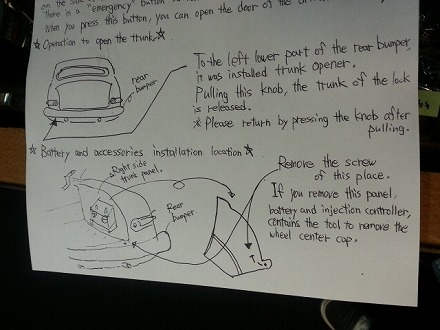 There is a "emergency" button
When you press this button, you can open the door of the
☆ Operation to open the trunk ☆
To the left lower part of the rear bumper,
it was installed trunk opener.
Pulling this knob, the trunk of the lock
is released.
* Please return by pressing the knob after
pulling.
rear
bumper
☆ Battery and accessories installation location ☆
Right side
trunk panel.
Rear
bumper
Remove the screw
of this place.
If you remove this panel,
battery and injection controller,
contains the tool to remove the
wheel center cap.